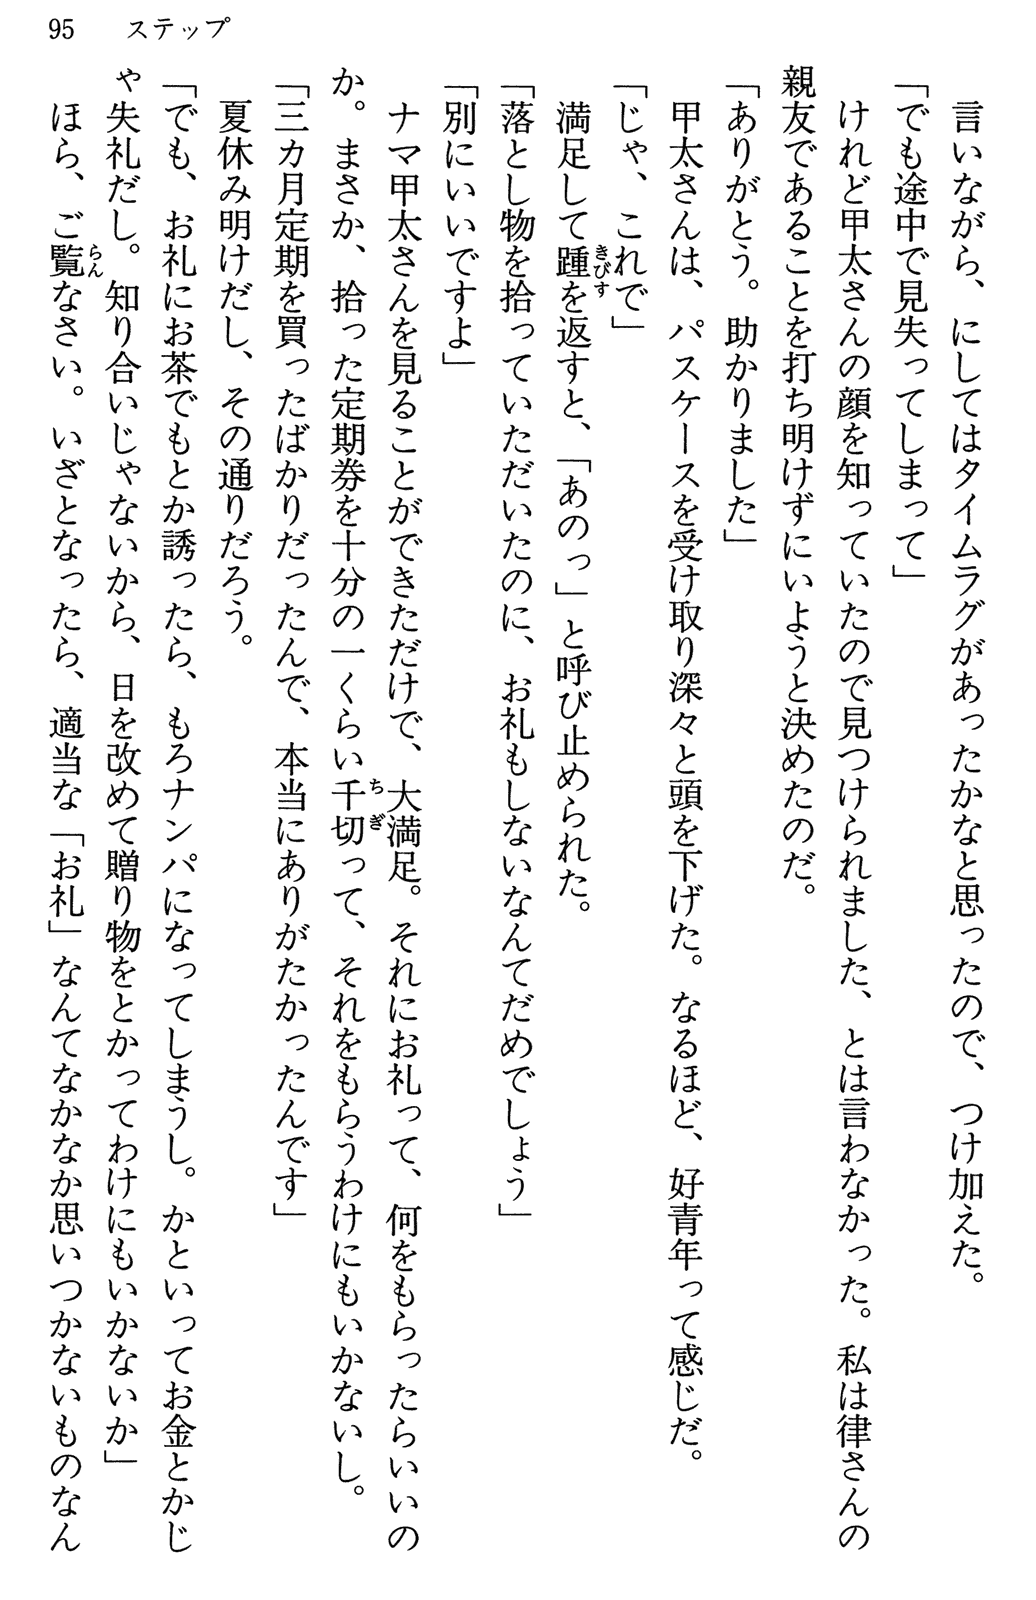 95　ステップ
　言いながら、にしてはタイムラグがあったかなと思ったので、つけ加えた。
「でも途中で見失ってしまって」
　けれど甲太さんの顔を知っていたので見つけられました、とは言わなかった。私は律さんの
親友であることを打ち明けずにいようと決めたのだ。
「ありがとう。助かりました」
　甲太さんは、パスケースを受け取り深々と頭を下げた。なるほど、好青年って感じだ。
「じゃ、これで」
　満足して踵きびすを返すと、「あのっ」と呼び止められた。
「落とし物を拾っていただいたのに、お礼もしないなんてだめでしょう」
「別にいいですよ」
　ナマ甲太さんを見ることができただけで、大満足。それにお礼って、何をもらったらいいの
か。まさか、拾った定期券を十分の一くらい千切ちぎって、それをもらうわけにもいかないし。
「三カ月定期を買ったばかりだったんで、本当にありがたかったんです」
　夏休み明けだし、その通りだろう。
「でも、お礼にお茶でもとか誘ったら、もろナンパになってしまうし。かといってお金とかじ
ゃ失礼だし。知り合いじゃないから、日を改めて贈り物をとかってわけにもいかないか」
　ほら、ご覧らんなさい。いざとなったら、適当な「お礼」なんてなかなか思いつかないものなん